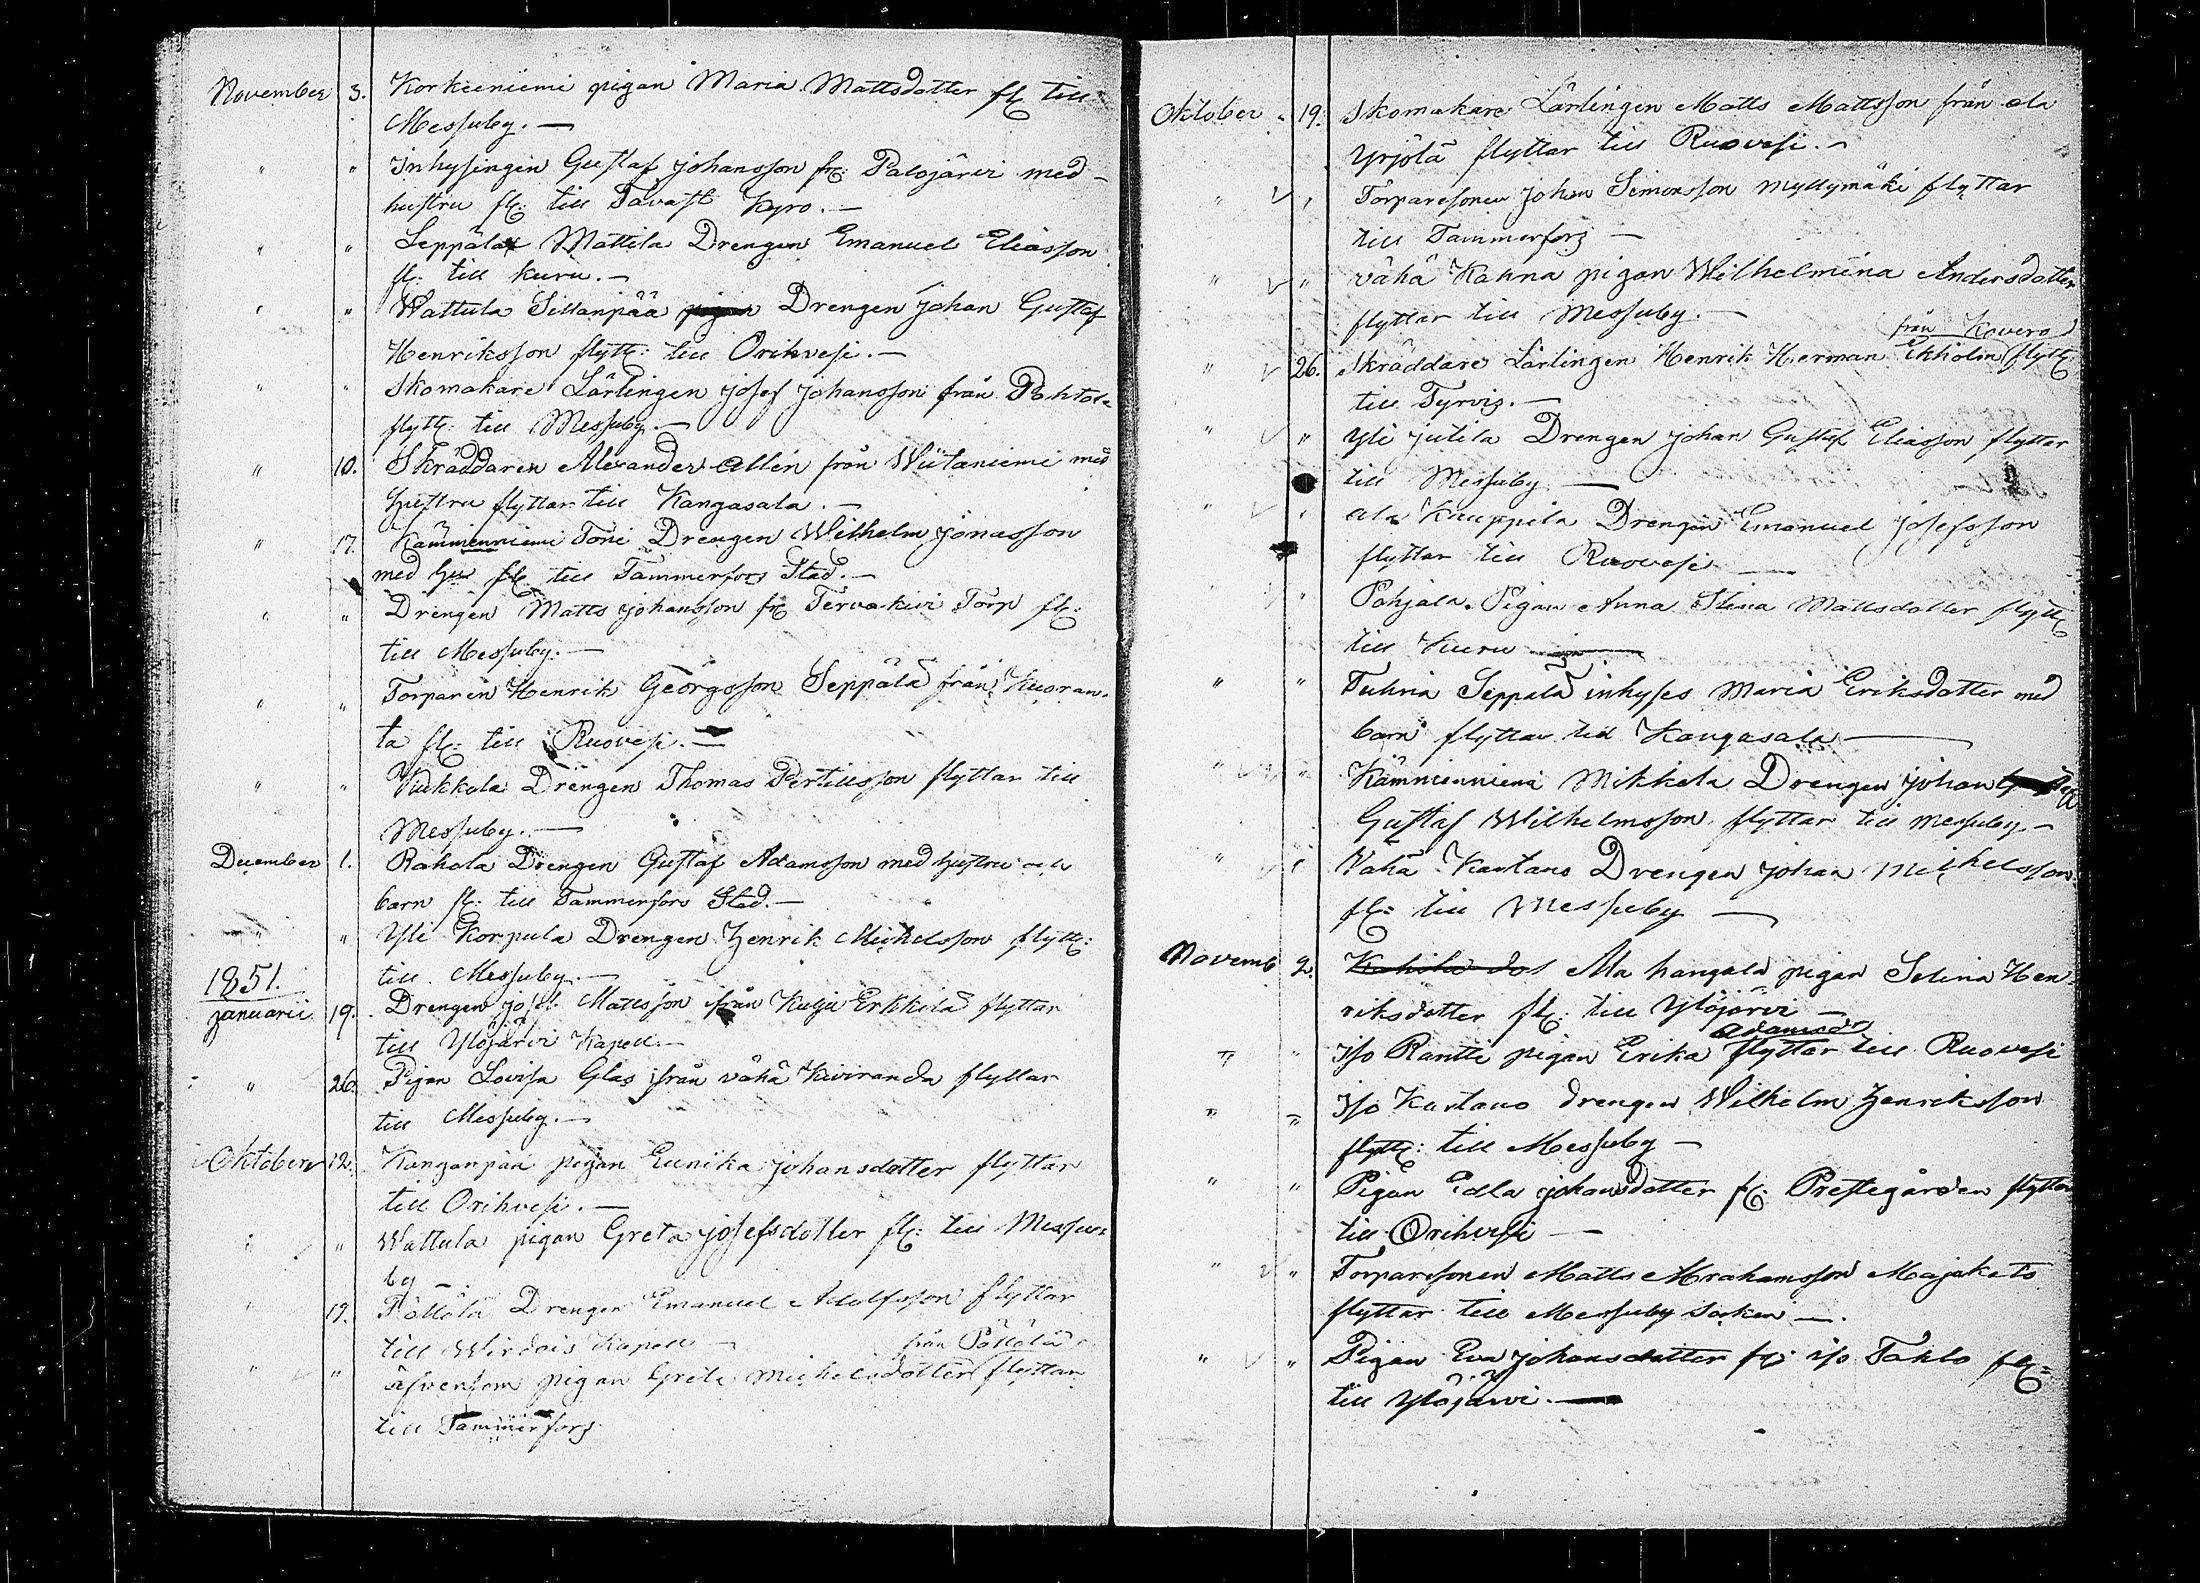 November 3. Korkeeniemi pigan Maria Mattsdotter fl: till
Messuby. —
" " Inhysingen Gustaf Johansson fr: Palojärvi med
hustru fl: till Tavast Kyro. —
" " Seppälä Mattila Drengen Emanuel Eliasson
fl: till Kuru. —
" " Wattula Sillanpää Drengen Johan Gustaf
Henriksson flytt: till Orihvesi. —
" " Skomakare Lärlingen Josef Johansson från
flytt: till Messuby. —
" 10. Skräddaren Alexander Allén från Wiitaniemi med
hustru flyttar till Kangasala. —
" 17. Kämmenniemi Toni Drengen Wilhelm Jonasson
med hu fl: till Tammerfors Stad. —
" " Drengen Matts Johansson fr: Tervakivi Torp fl:
till Messuby. —
" " Torparen Henrik Georgsson Seppälä från Kuoran-
ta fl: till Ruovesi. —
" " Kukkola Drengen Thomas Pertilsson flyttar till
Messuby. —
December 1. Rahola Drengen Gustaf Adamsson med hustru och
barn fl: till Tammerfors Stad. —
" " Yli Korpula Drengen Henrik Michelsson flytt:
till Messuby. —
1851.
Januarii 19. Drengen Josef Mattsson från Kulju Erkkilä flyttar
till Ylöjärvi Kapell. —
" 26. Pigan Lovisa Glas från vähä Kiviranda flyttar
till Messuby. —
Oktober 12. Kanganpää pigan Eunika Johansdotter flyttar
till Orihvesi. —
" " Wattula pigan Greta Josefsdotter fl: till Messu-
by —
" 19. Pöllölä Drengen Emanuel Adolfsson flyttar
till Wirdois Kapell — från Pöllölä
" " äfvensom pigan Greta Michelsdotter flyttar
till Tammerfors
Oktober 19. Skomakare Lärlingen Matts Mattsson från ala
Yrjölä flyttar till Ruovesi. —
" " Torparesonen Johan Simonsson Myllymäki flyttar
till Tammerfors —
" " vähä Kahna pigan Wilhelmina Andersdotter
flyttar till Messuby. —
från Kovero
" 26. Skräddare Lärlingen Henrik Herman Ekholm flytt:
till Tyrvis. —
" " Yli Jutila Drengen Johan Gustaf Eliasson flyttar
till Messuby —
" " ala Knuppila Drengen Emanuel Josefsson
flyttar till Ruovesi —
" " Pohjala Pigan Anna Stina Mattsdotter flytt:
till Kuru —
" " Tuhria Seppälä inhyses Maria Eriksdotter med
barn flyttar till Kangasala —
" " Kämmenniemi Mikkola Drengen Johan
Gustaf Wilhelmsson flyttar till Messuby —
" " Vähä Kartano Drengen Johan Michelsson
fl: till Messuby —
Novemb 2. Ala hangala pigan Selina Hen-
riksdotter fl: till Ylöjärvi —
Adamsdr
" " Iso Rantti pigan Erika flyttar till Ruovesi
" " Iso Kartano drengen Wilhelm Henriksson
flytt: till Messuby —
" " Pigan Edla Johansdotter fr: Prestegården flyttar
till Orihvesi —
" " Torparesonen Matts Abrahamsson Majaketo
flyttar till Messuby Socken —.
" " Pigan Eva Johansdotter fr: iso Tahlo fl:
till Ylöjärvi. —